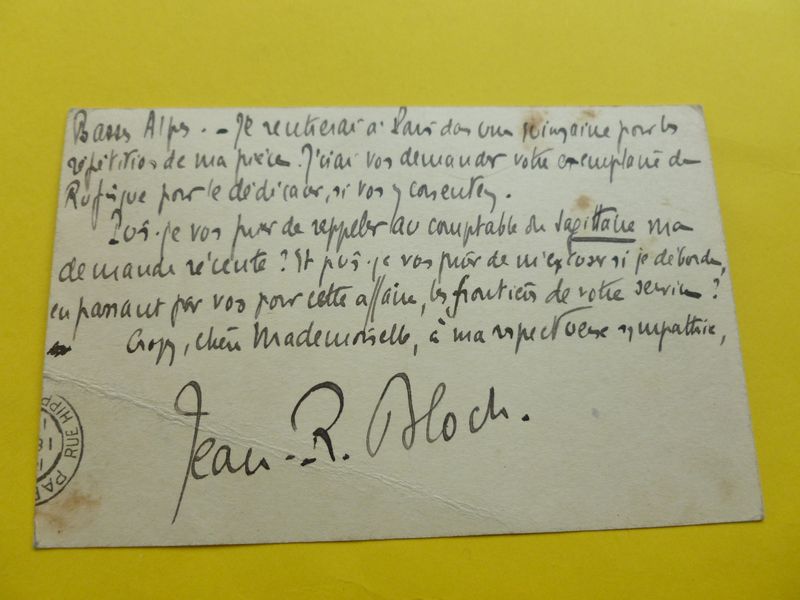 Basses Alpes. – Je rentrerai à Paris dans une quinzaine pour les
répétitions de ma pièce. J'irai vous demander votre exemplaire de
pour le dédicacer, si vous y consentez.
Puis-je vous prier de rappeler au comptable du Sagittaire ma
demande récente ? Et puis-je vous prier de m'excuser si je déborde,
en passant par vous pour cette affaire, les frontières de votre service ?
Croyez, chère Mademoiselle, à ma respectueuse sympathie,
Jean-R. Bloch.
PA RUE HIPP